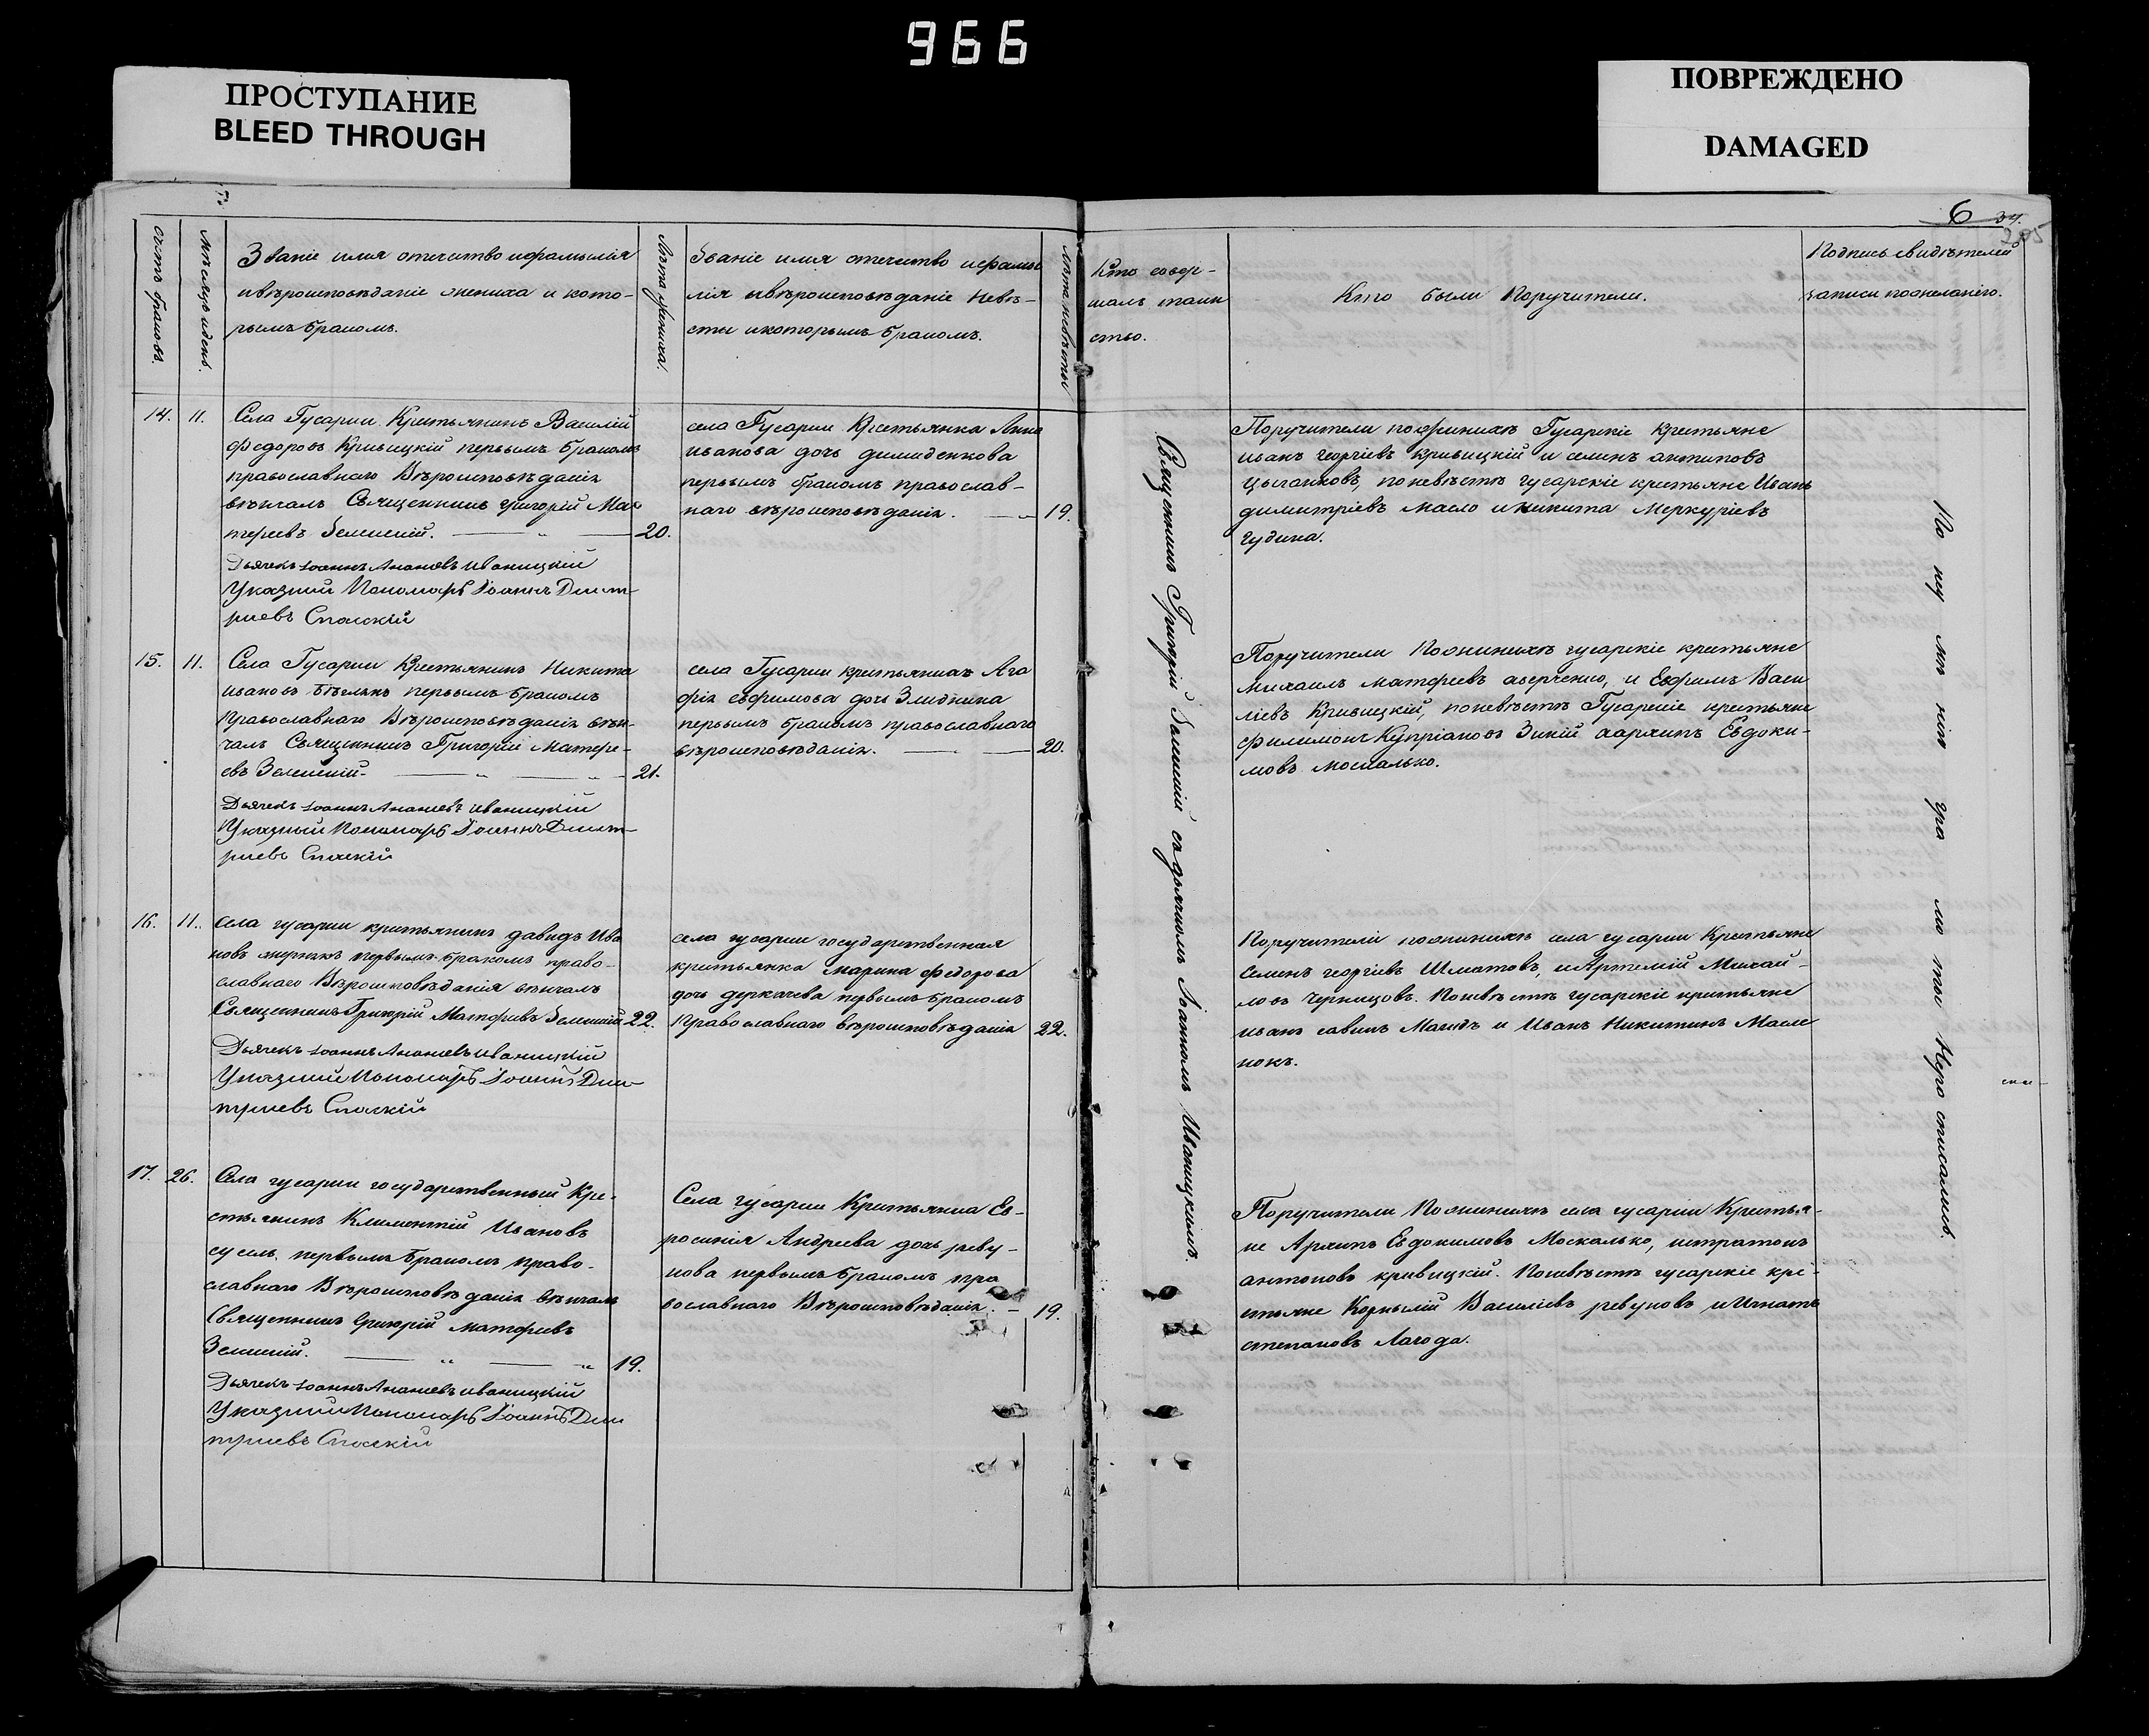 966
ПРОСТУПАНИЕ
BLEED THROUGH
ПОВРЕЖДЕНО
DAMAGED
6
счетъ браковъ.
мѣсяцъ и день.
Званіе имя отечиство и фамилія
и вѣроисповѣданіе жениха и кото-
рымъ бракомъ.
Лѣта жениха.
Званіе имя отечиство и фами
лія и вѣроисповѣданіе невѣ-
сты и которымъ бракомъ.
Лѣта невѣсты
Кто совер-
шалъ таин
ство.
Кто были поручители.
Подпись свидѣтелей
записи по желанію.
14. 11. Села Гусарки Крестьянинъ Василій
Федоровъ Кривицкій первымъ бракомъ
православнаго вѣроисповѣданія
вѣнчалъ Священникъ Григорій Мат
феевъ Зеленскій. 20.
Дьячекъ Іоаннъ Ананіевъ Иваницкій
Указный Пономарь Іоаннъ Димит
риевъ Спаскій
села Гусарки Крестьянка Анна
иванова дочь димиденкова
первымъ бракомъ православ-
наго вѣроисповѣданія. 19.
Поручители по женихѣ Гусарскіе крестьяне
иванъ георгіевъ кривицкій и семенъ антиповъ
цыганковъ, по невѣстѣ гусарскіе крестьяне Иванъ
димитріевъ масло и никита Меркуріевъ
гудина.
15. 11. Села Гусарки Крестьянинъ Никита
ивановъ первымъ бракомъ
Православнаго Вѣроисповѣданія вѣн-
чалъ Священникъ Григорій Матфе-
евъ Зеленскій. 21.
Дьячекъ Іоаннъ Ананіевъ иваницкій
Указный Пономарь Іоаннъ Димит
риевъ Спаскій
села Гусарки крестьянка Ага
фія ефимова дочь Злиднина
первымъ бракомъ православнаго
вѣроисповѣданія. 20.
Поручители По женихѣ гусарскіе крестьяне
михаилъ матфеевъ аверченко, и Ефимъ Васи
ліевъ Кривицкій, по невѣстѣ Гусарскіе крестьяне
филимонъ Купріановъ Зинкій Евдоки-
мовъ москалько.
16. 11. села гусарки крестьянинъ давидъ Ива
новъ первымъ бракомъ право-
славнаго Вѣроисповѣданія вѣнчалъ
Священникъ Григорій Матфиевъ Зеленскій 22.
Дьячекъ Іоаннъ Ананіевъ иваницкій
Указный Пономарь Іоаннъ Дими
триевъ Спаскій
села гусарки государственная
крестьянка марина федорова
дочь деркачева первымъ бракомъ
Православнаго вѣроисповѣданія 22.
Поручители по женихѣ села гусарки Крестьяне
Семенъ георгіевъ Шматовъ, и Артемій Михай-
ловъ Чернцовъ. По невѣстѣ гусарскіе крестьяне
иванъ савинъ и Иванъ Никитинъ Масле
нокъ.
17. 26. Села гусарки государственный Кре-
стьянинъ Климентій Ивановъ
сусль первымъ бракомъ право-
славнаго Вѣроисповѣданія вѣнчалъ
Священникъ Григорій матфиевъ
Зеленскій. 19.
Дьячекъ Іоаннъ Ананіевъ иваницкій
Указный Пономарь Іоаннъ Дими
триевъ Спаскій
Села гусарки Крестьянка Ев-
росинія Андреева дочь реву-
нова первымъ бракомъ пра
вославнаго Вѣроисповѣданія. 19.
Поручители По женихѣ села гусарки Крестья-
не Архипъ Евдокимовъ Москалько, истратонъ
антоновъ кривицкій. По невѣстѣ гусарскіе кре-
стьяне Корнылій Василіевъ ревуновъ и Игнатъ
степановъ Лагода.
Священникъ Григорій Зеленскій съ дьячкомъ Іоанномъ Иваницкимъ.